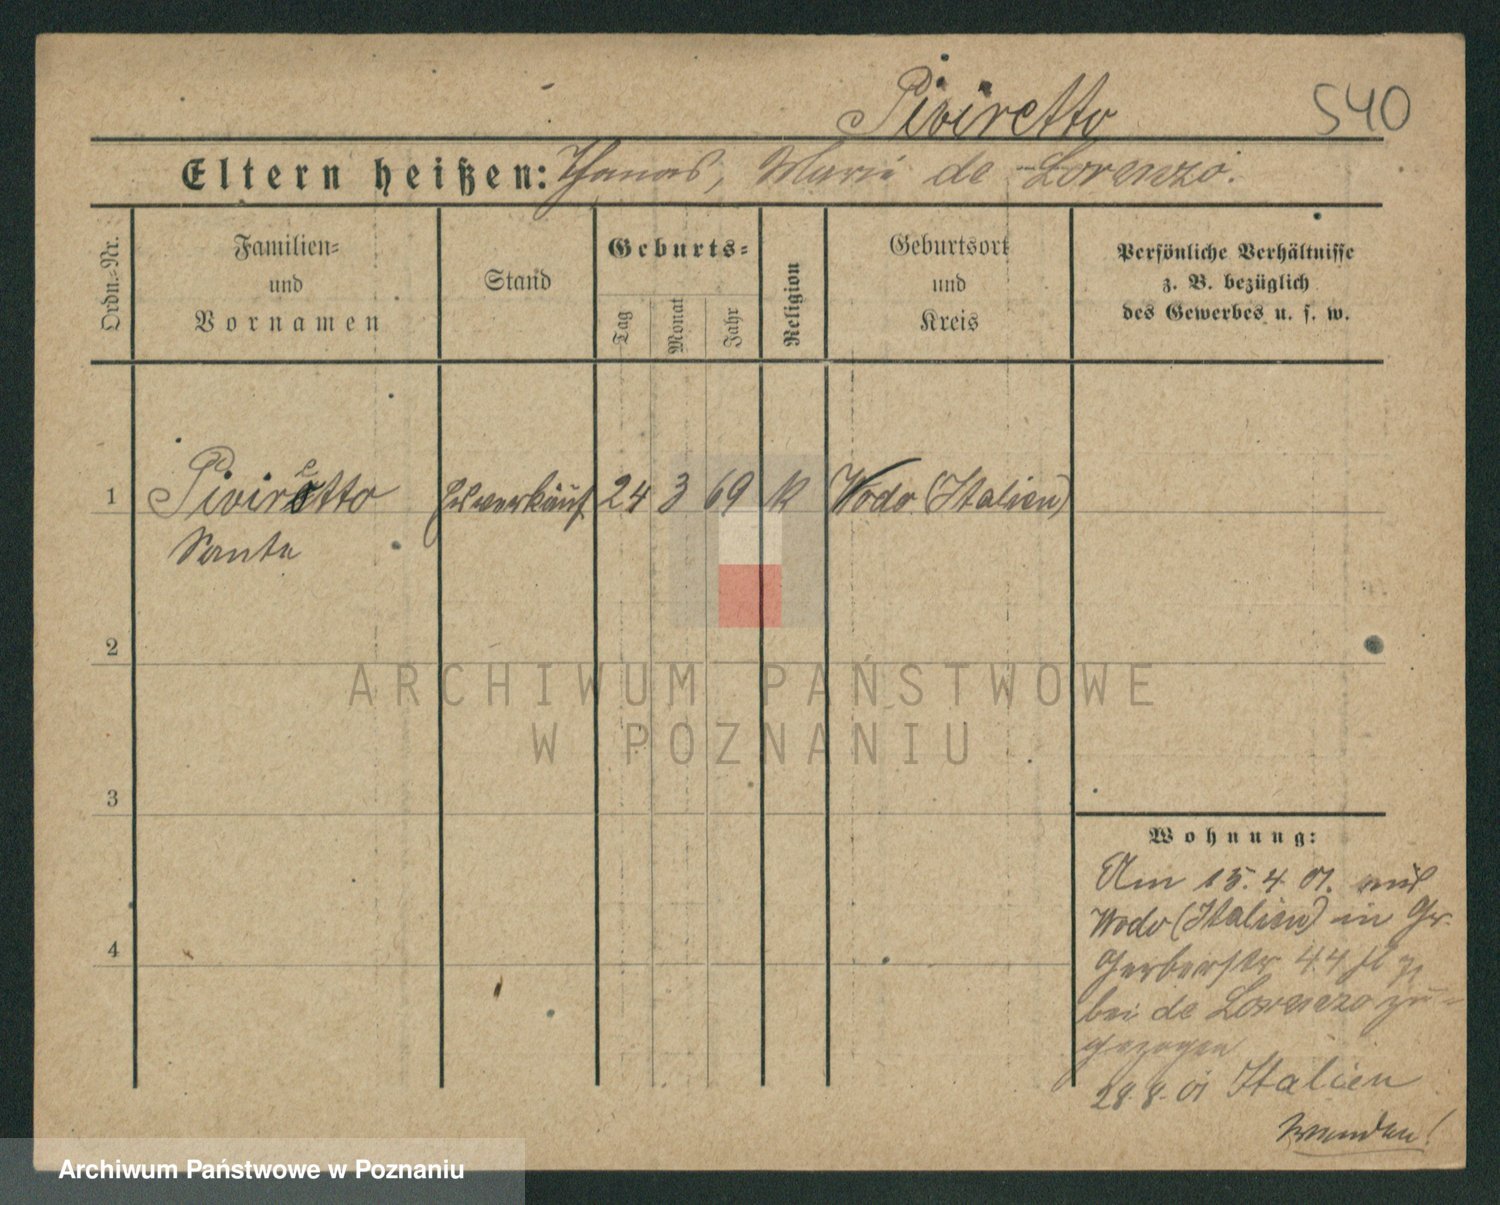 Piviretto 540
Eltern heißen: Thomas, Marie de Lorenzo.
Ordn.-Nr.
Familien-
und
Vornamen
Stand
Geburts-
Tag
Monat
Jahr
Religion
Geburtsort
und
Kreis
Persönliche Verhältnisse
z. B. bezüglich
des Gewerbes u. s. w.
1 Piviretto Eisverkäuf. 24 3 69 K Vodo (Italien)
Sante
2
3
4
ARCHIWUM PAŃSTWOWE
W POZNANIU
Wohnung:
Am 15.4.01. aus
Vodo (Italien) in Gr.
Gerberstr. 44
bei de Lorenzo zu-
gezogen
28.8.01 Italien
Wenden!
Archiwum Państwowe w Poznaniu